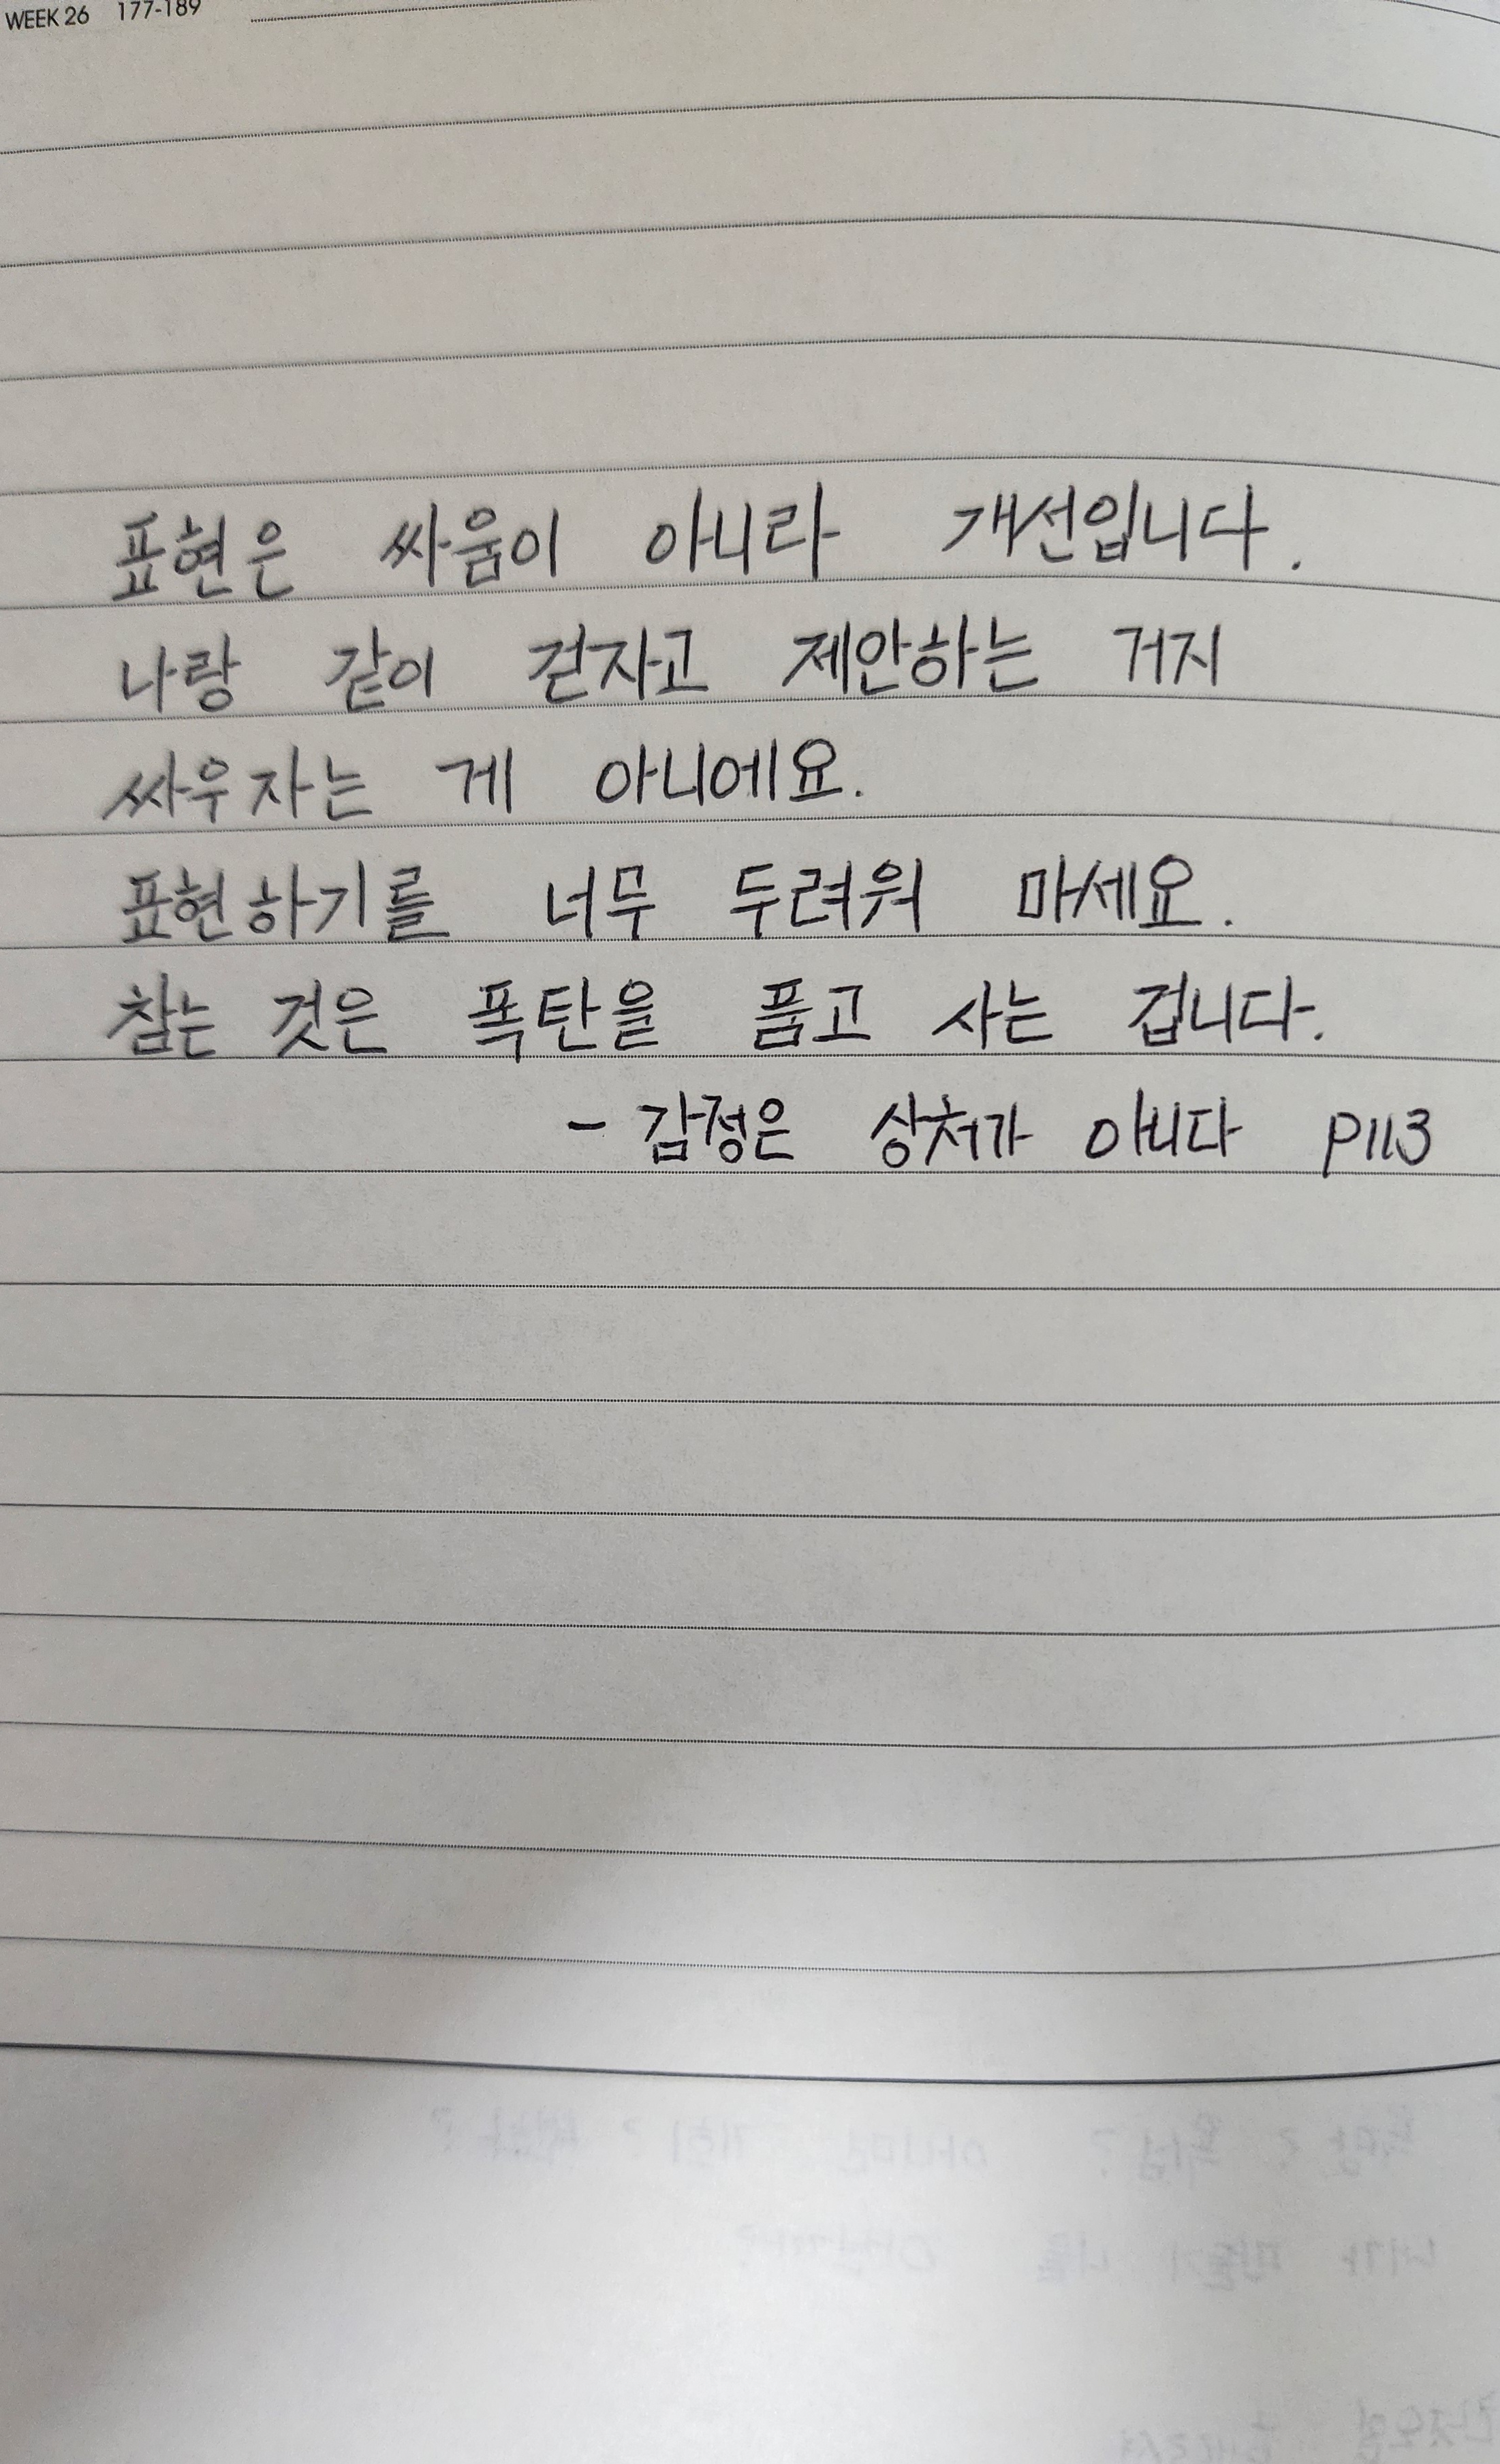 WEEK 26 177-189
표현은 싸움이 아니라 개선입니다.
나랑 같이 걷자고 제안하는 거지
싸우자는 게 아니에요.
표현하기를 너무 두려워 마세요.
참는 것은 폭탄을 품고 사는 겁니다.
- 감정은 상처가 아니다 P113